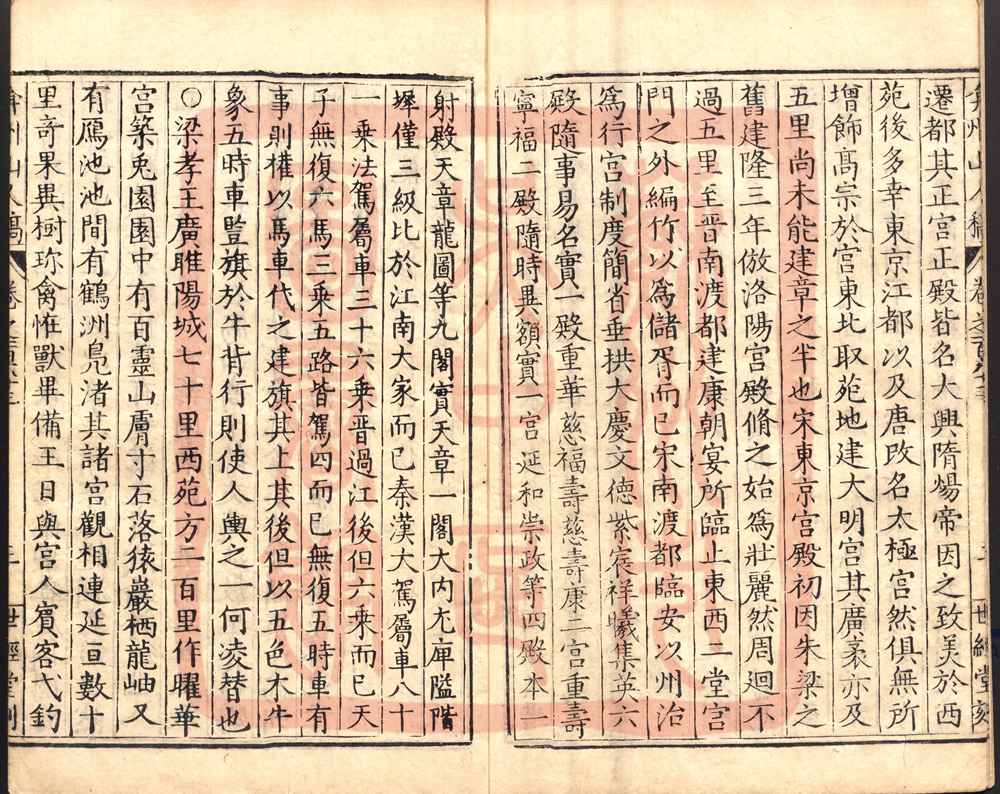 弇州山人稿 卷之一百六十三 三 世經堂刻
遷都其正宮正殿皆名大興隋煬帝因之致美於西
苑後多幸東京江都以及唐改名太極宮然俱無所
增飾高宗於宮東北取苑地建大明宮其廣袤亦及
五里尚未能建章之半也宋東京宮殿初因朱梁之
舊建隆三年倣洛陽宮殿脩之始為壯麗然周迴不
過五里至晉南渡都建康朝宴所臨止東西二堂宮
門之外編竹以為儲胥而已宋南渡都臨安以州治
為行宮制度簡省垂拱大慶文德紫宸祥曦集英六
殿隨事易名實一殿重華慈福壽慈壽康二宮重壽
寧福二殿隨時異額實一宮延和崇政等四殿本一
射殿天章龍圖等九閣實天章一閣大內尤庳隘階
墀僅三級比於江南大家而已秦漢大駕屬車八十
一乘法駕屬車三十六乘晉過江後但六乘而已天
子無復六馬三乘五路皆駕四而已無復五時車有
事則權以馬車代之建旗其上其後但以五色木牛
象五時車豎旗於牛背行則使人輿之一何凌替也
○梁孝王廣睢陽城七十里西苑方二百里作曜華
宮築兔園園中有百靈山膚寸石落猿巖栖龍岫又
有鴈池池間有鶴洲鳧渚其諸宮觀相連延亘數十
里奇果異樹珍禽恠獸畢備王日與宮人賓客弋釣
弇州山人稿 卷之 三 世經堂刻